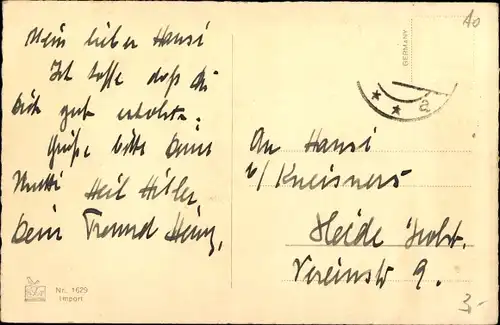 Mein lieber Hansi
Ich hoffe daß du
dich gut erholst.
Grüße bitte deine
Mutti Heil Hitler
Dein Freund Heinz,
Nr. 1629
Import
GERMANY
a
An Hansi
b/Kneisners
Heide Holst.
Vereinstr 9.
3,-